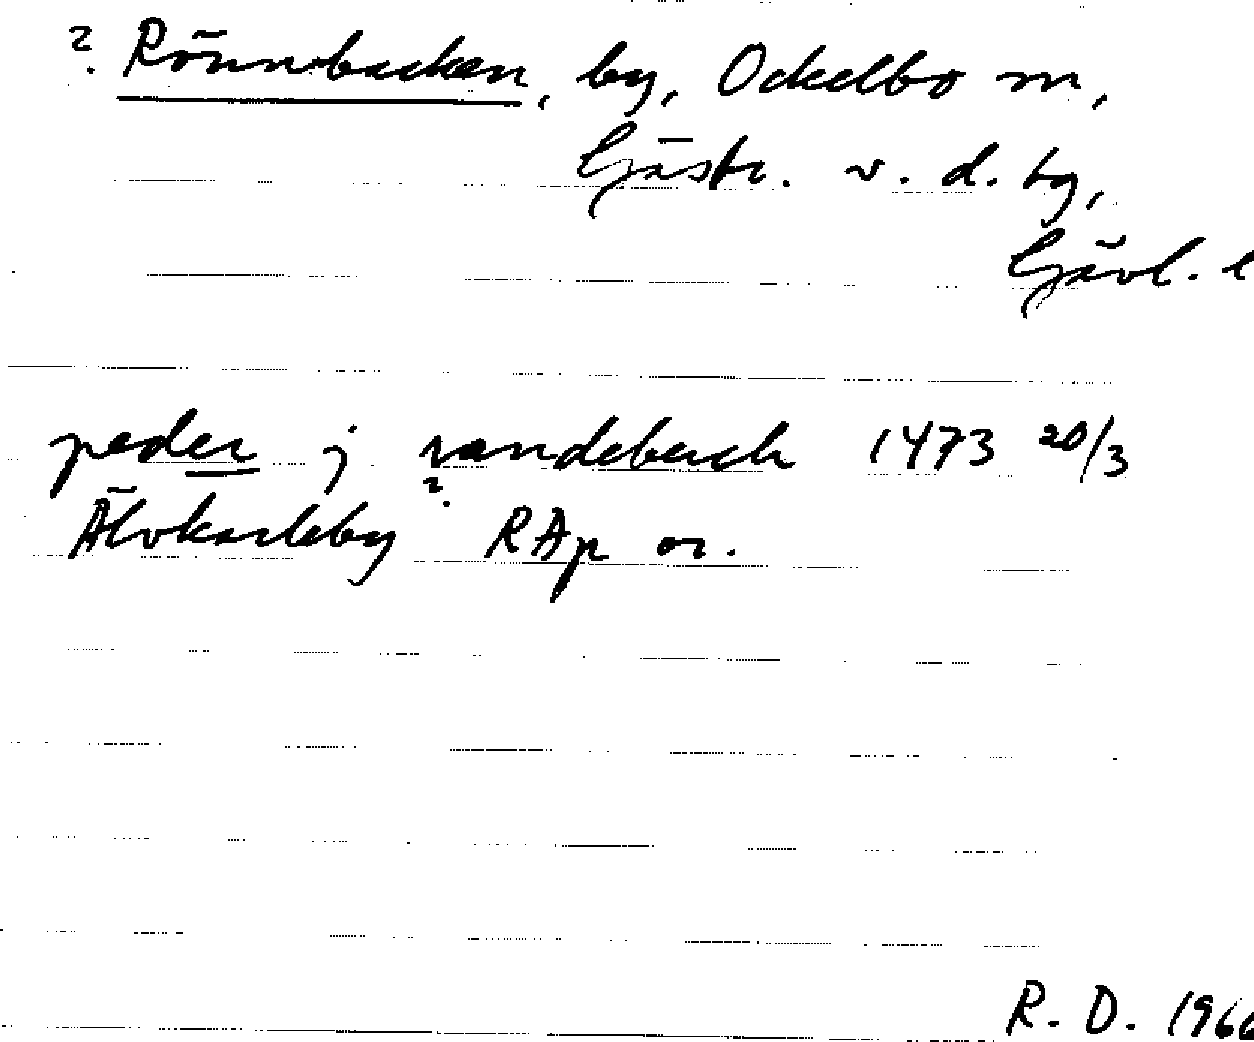 ? Rönnbacken, by, Ockelbo sn,
Gästr. v. d. tg,
Gävl. l
peder j randebeck 1473 20/3
?
Älvkarleby RAp or.
R. D. 196